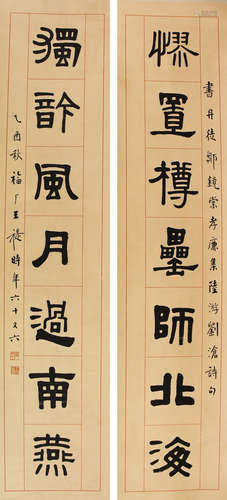 書丹徒鄭鏡棠孝廉集陸游劉滄詩句
憀置樽罍師北海
獨䪩風月過南燕
乙酉秋福厂王禔時年六十又六